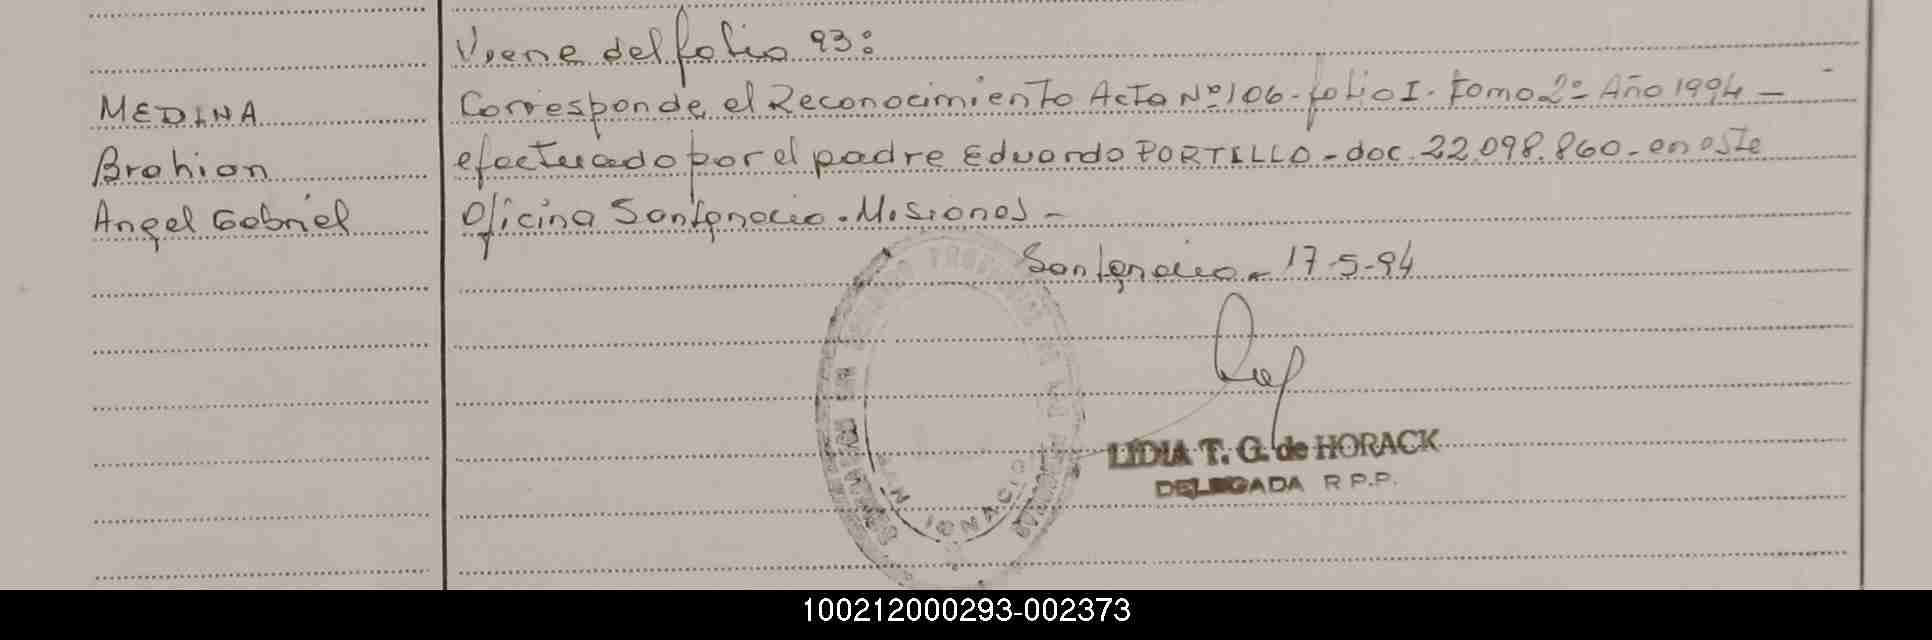 Viene del folio 93:
MEDINA
Brahian
Angel Gabriel
Corresponde el Reconocimiento Acta Nº 106 - folio I. tomo 2º Año 1994 -
efectuado por el padre Eduardo PORTILLO - doc. 22.098.860 - en este
Oficina San Ignacio. Misiones -
San Ignacio - 17-5-94
LIDIA T. G. de HORACK
DELEGADA R P.P.
IGNACIO
100212000293-002373